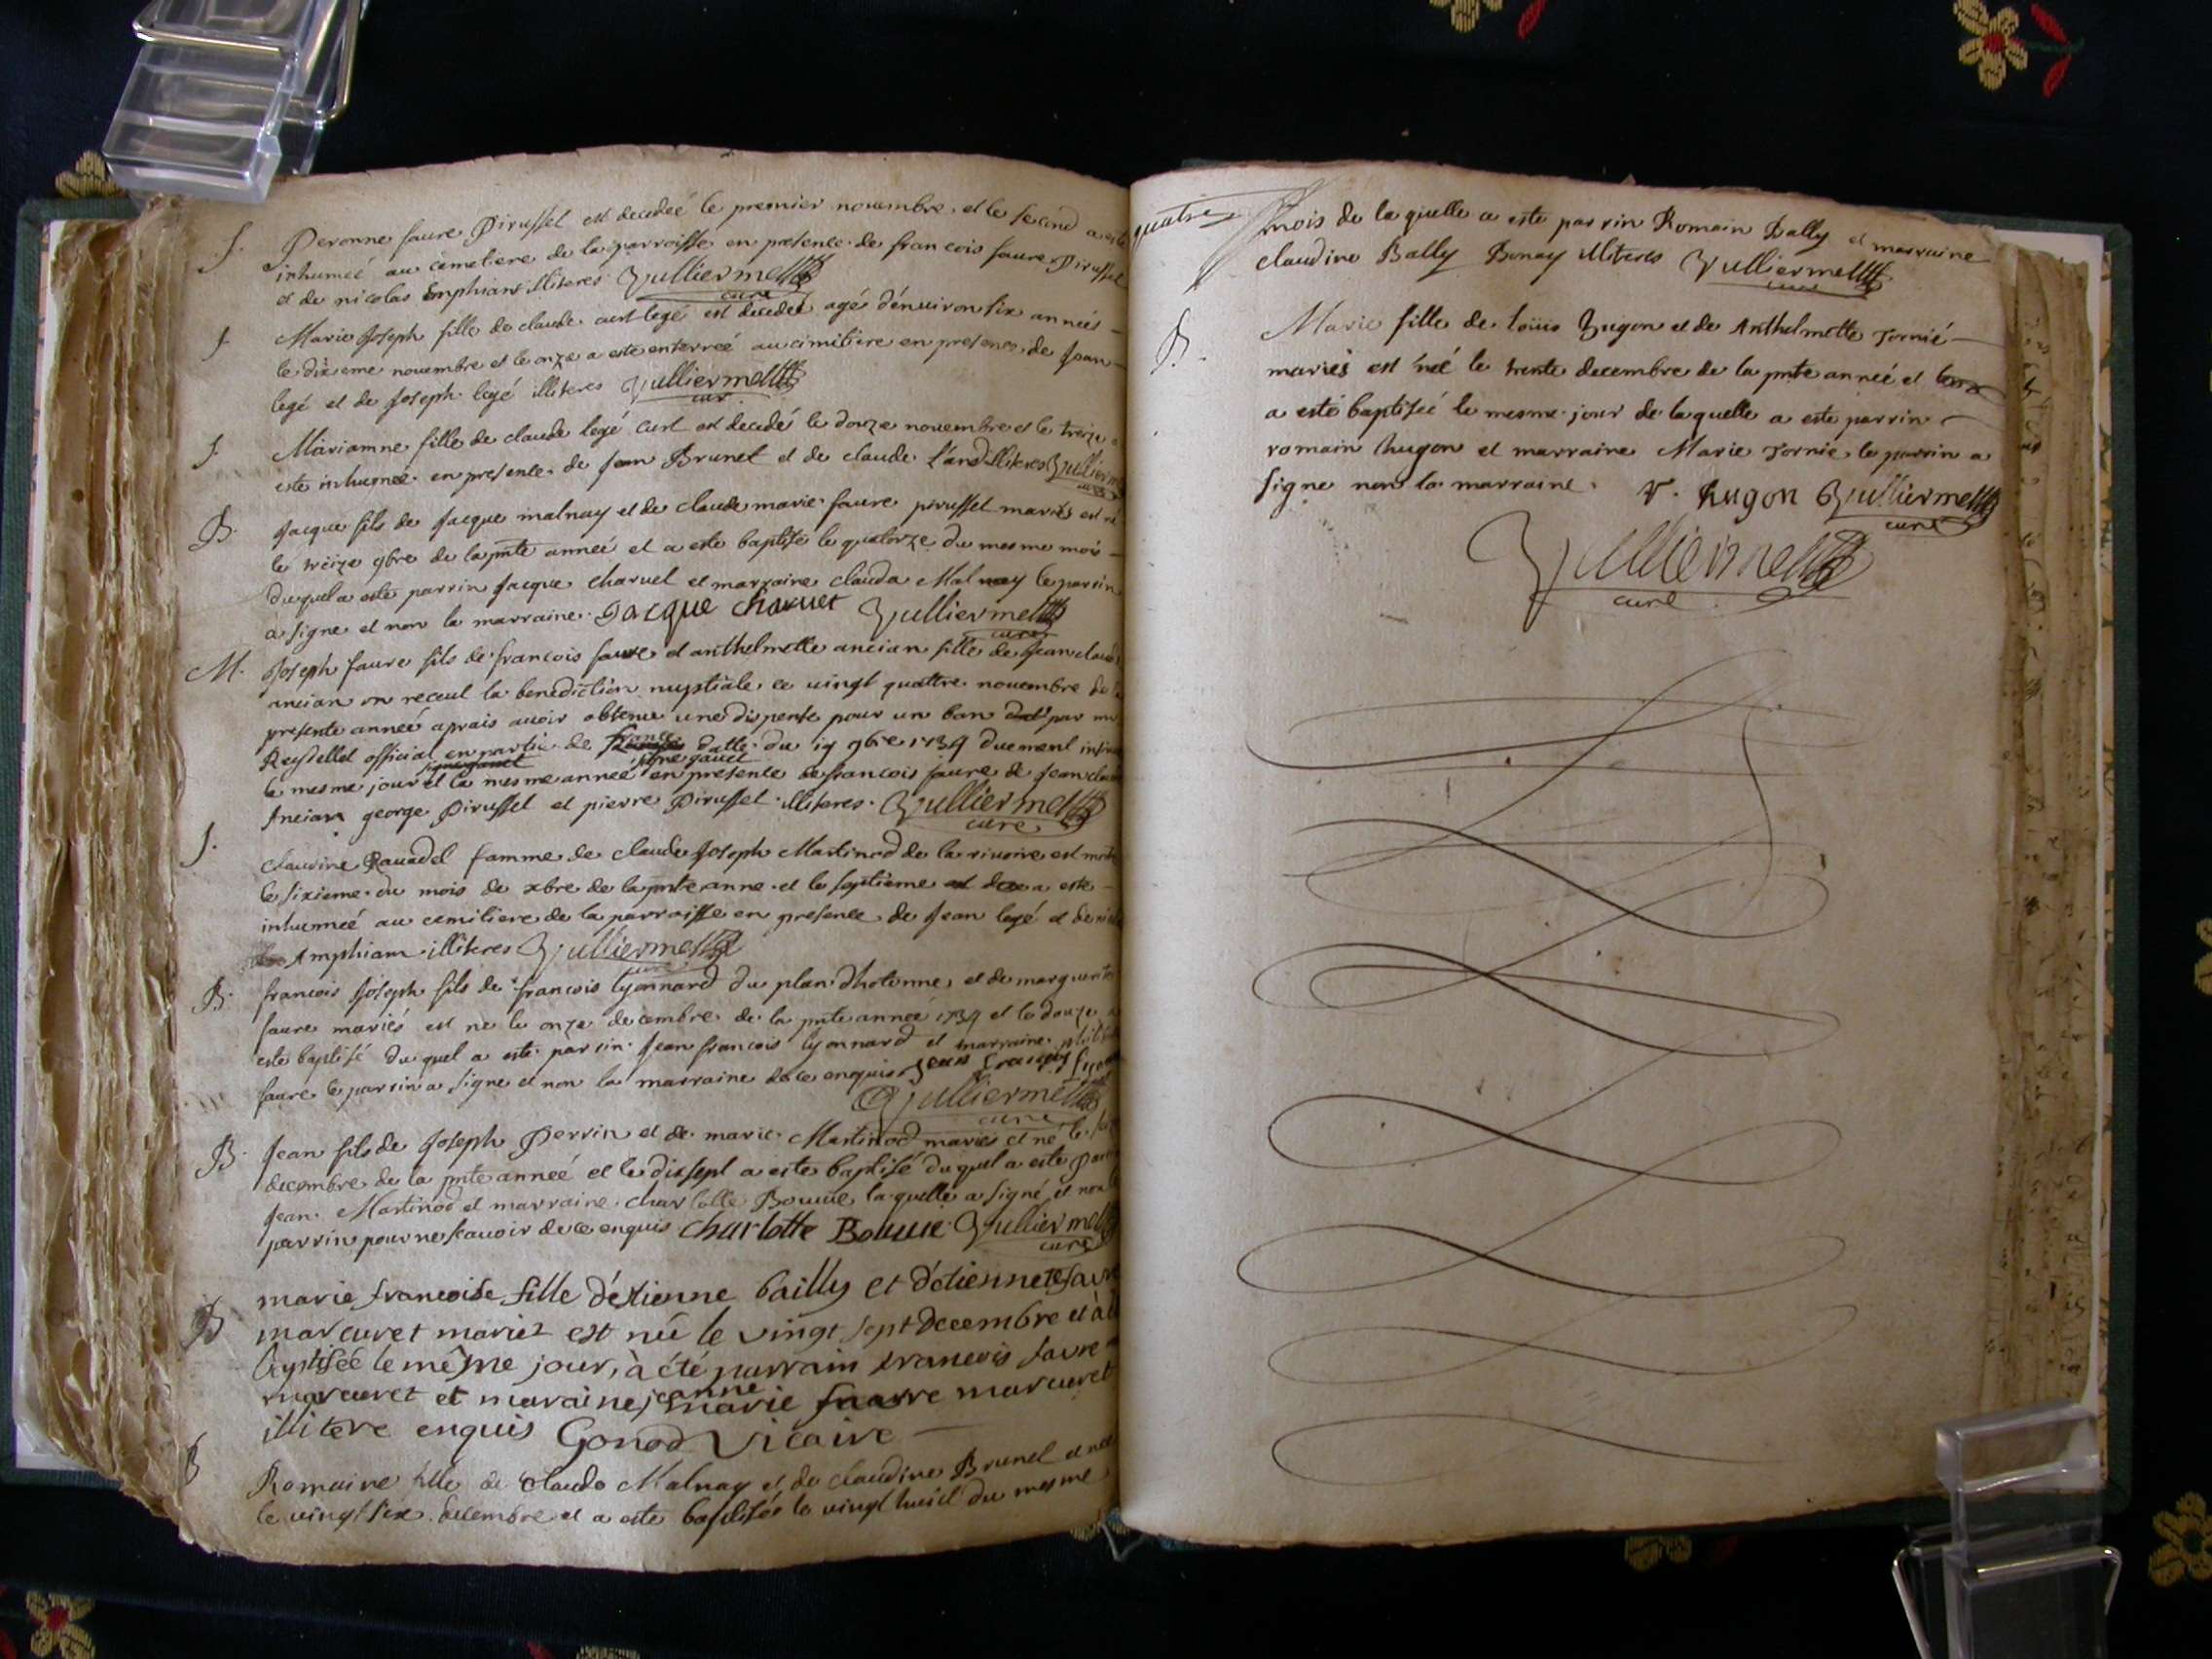 S. Peronne faure Pirussel est decedeé le premier novembre et le second a esté
inhumeé au cemetiere de la parroisse en presence de francois faure Pirussel
et de nicolas Emphiant illiteres Vulliermet curé
S. Marie Joseph fille de claude curt legé est decedeé agé d'enuiron six anneés
le dixieme novembre et le onze a esté enterreé au cimitiere en presence de Jean
legé et de Joseph legé illiteres Vulliermet cur
S. Mariamne fille de claude legé curt est decedé le douze novembre et le treize a
esté inhumeé en presence de Jean Brunet et de claude Land illiteres Vullierm
B. Jacque fils de Jacque malnay et de claude marie faure pirussel mariés est né
le treize 9bre de la pnte anneé et a esté baptisé le quatorze du mesme mois
duquel a esté parrin Jacque charuet et marraine clauda Malnay le parrin
a signe et non la marraine. Jacque charuet Vulliermet curé
M. Joseph faure fils de francois faure et anthelmette ancian fille de Jean claude
ancian on receut la benediction nuptiale ce uingt quattre nouembre de la
presente anneé aprais auoir obtenu une dispense pour un ban par mr
Reystellet official en partie de france datté du 19 9bre 1734 duement insinué
le mesme jour et la mesme anneé signe gauet en presence de francois faure de Jean claude
Ancian george Pirussel et pierre Pirussel illiteres. Vulliermet curé
S. claudine Rauadel famme de claude Joseph Martinod de la riuoire est morte
le sixieme du mois de xbre de la pnte anne et le septieme a este
inhumeé au cemitiere de la parroisse en presence de Jean legé et de
Amphian illiteres Vulliermet curé
B. francois Joseph fils de francois lyonnard du plan d'hotonne et de marguerite
faure mariés est né le onze decembre de la pnte anneé 1734 et le douze a
este baptisé du quel a este parrin Jean francois lyonnard et marraine
faure le parrin a signe et non la marraine de ce enquis Jean francois
Vulliermet curé
B. Jean fils de Joseph Perrin et de marie Martinod mariés et né le
decembre de la pnte anneé et le dissept a este baptisé du quel a este parrin
Jean Martinod et marraine charlotte Bouuie la quelle a signé et non le
parrin pour ne scauoir de ce enquis charlotte Bouuie Vulliermet curé
B marie francoise fille d'éstienne bailly et d'etiennete favre
marcuret mariez est née le vingt sept decembre et à été
baptisée le même jour, à été parrain francois favre
marcuret et maraine jeanne marie favre marcuret
illitere enquis Gonod Vicaire
B Romaine fille de claude Malnay et de claudine Brunet et neé
le uingt six decembre et a este baptisée le uingt huict du mesme
quatre mois de la quelle a esté parrin Romain Bally et marraine
claudine Bally Bonay illiteres Vulliermet curé
B. Marie fille de loüis hugon et de Anthelmette Tornié
mariés est neé le trente decembre de la pnte anneé et
a esté baptiseé le mesme jour de la quelle a esté parrin
romain hugon et marraine Marie Tornie le parrin a
signe non la marraine. r. hugon Vulliermet curé
Vulliermet
curé